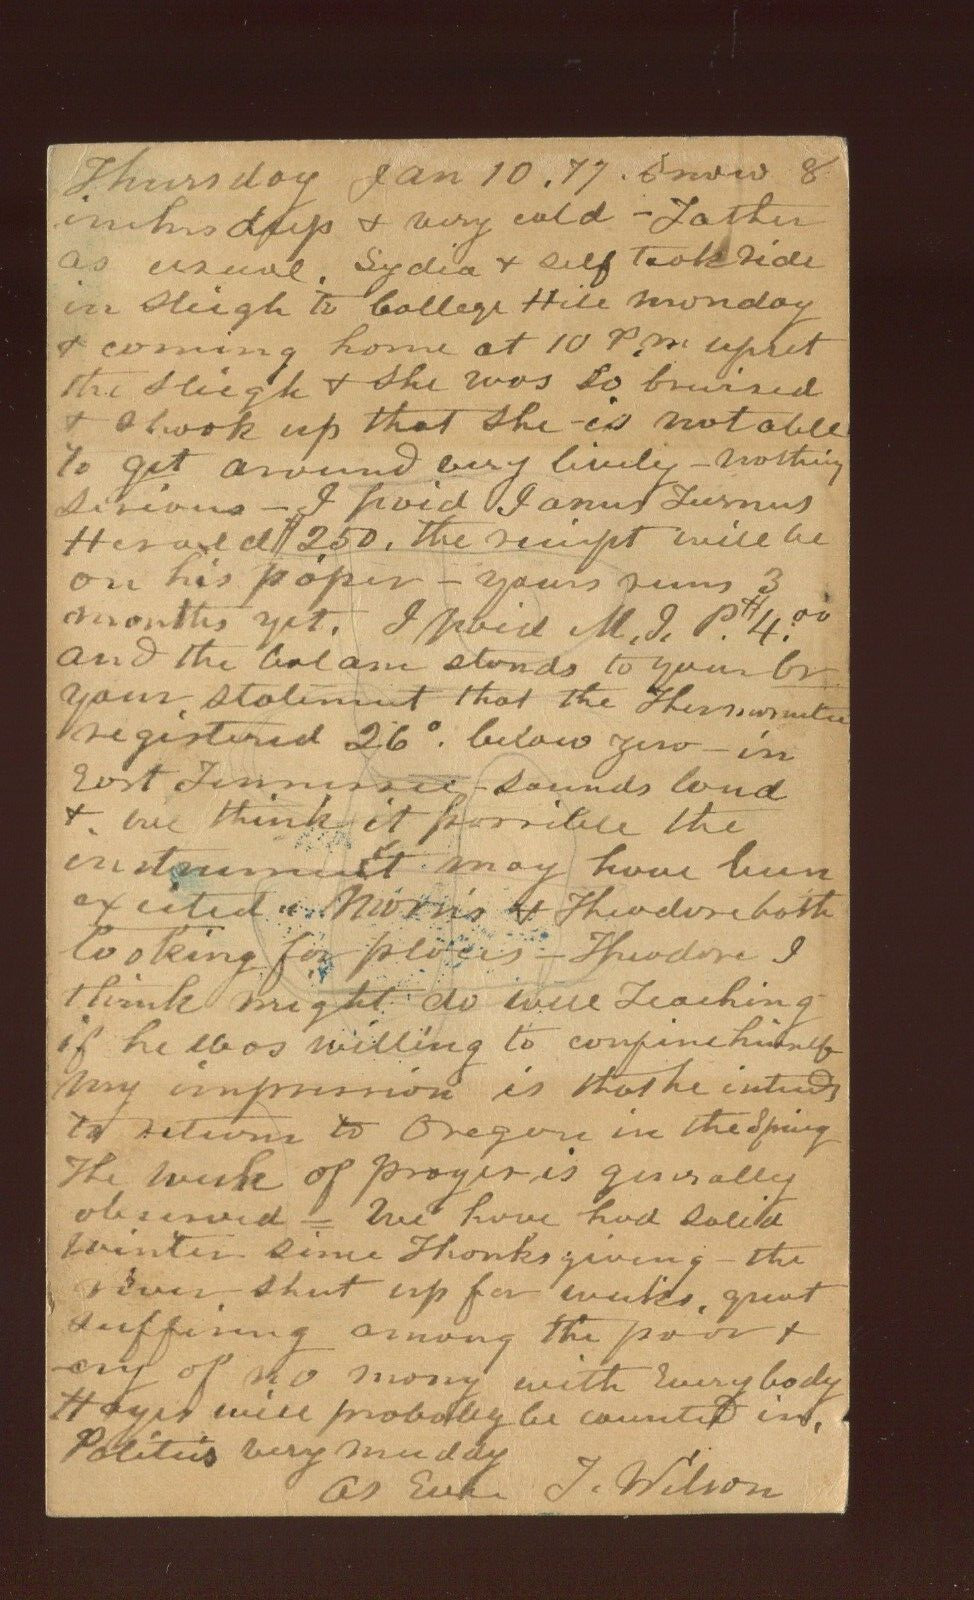 Thursday Jan 10.77. Snow 8
inches deep & very cold - Father
as usual. Lydia & self took ride
in sleigh to College Hill Monday
& coming home at 10 P.m. upset
the sleigh & she was so bruised
& shook up that she is not able
to get around very lively - nothing
serious - I paid
Herald $250. the reciept will be
on his paper - yours runs 3
months yet. I paid M. J. P. $4.00
and the balam stands to your cr
your statement that the Thermometer
registered 26°. below zero - in
East Tennessee sounds loud
&. we think it possible the
instrument may have been
excited. Morris & Theodore both
looking for places - Theodore I
think might do well Teaching
if he was willing to confine himself
My impression is that he intends
to return to Oregon in the Spring
The week of prayer is generally
observed = We have had solid
winter since Thanksgiving - the
river shut up for weeks, great
suffering among the poor &
cry of no mony with Everybody
Hayes will probably be counted in.
Politics very muddy
As Ever J. Wilson